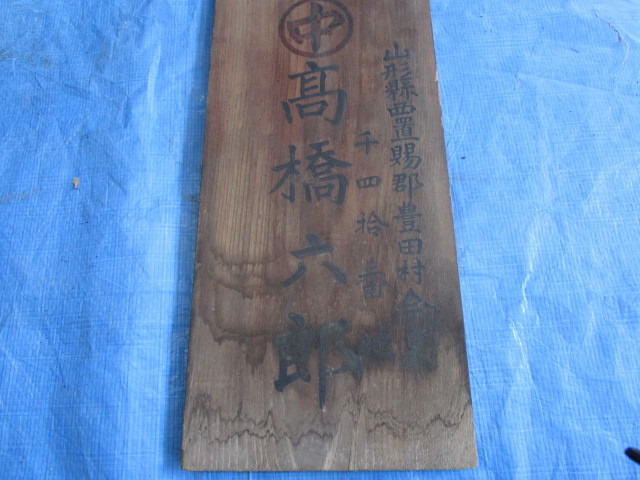 山形縣西置賜郡豊田村今泉
千四拾番地
中
髙橋六郎